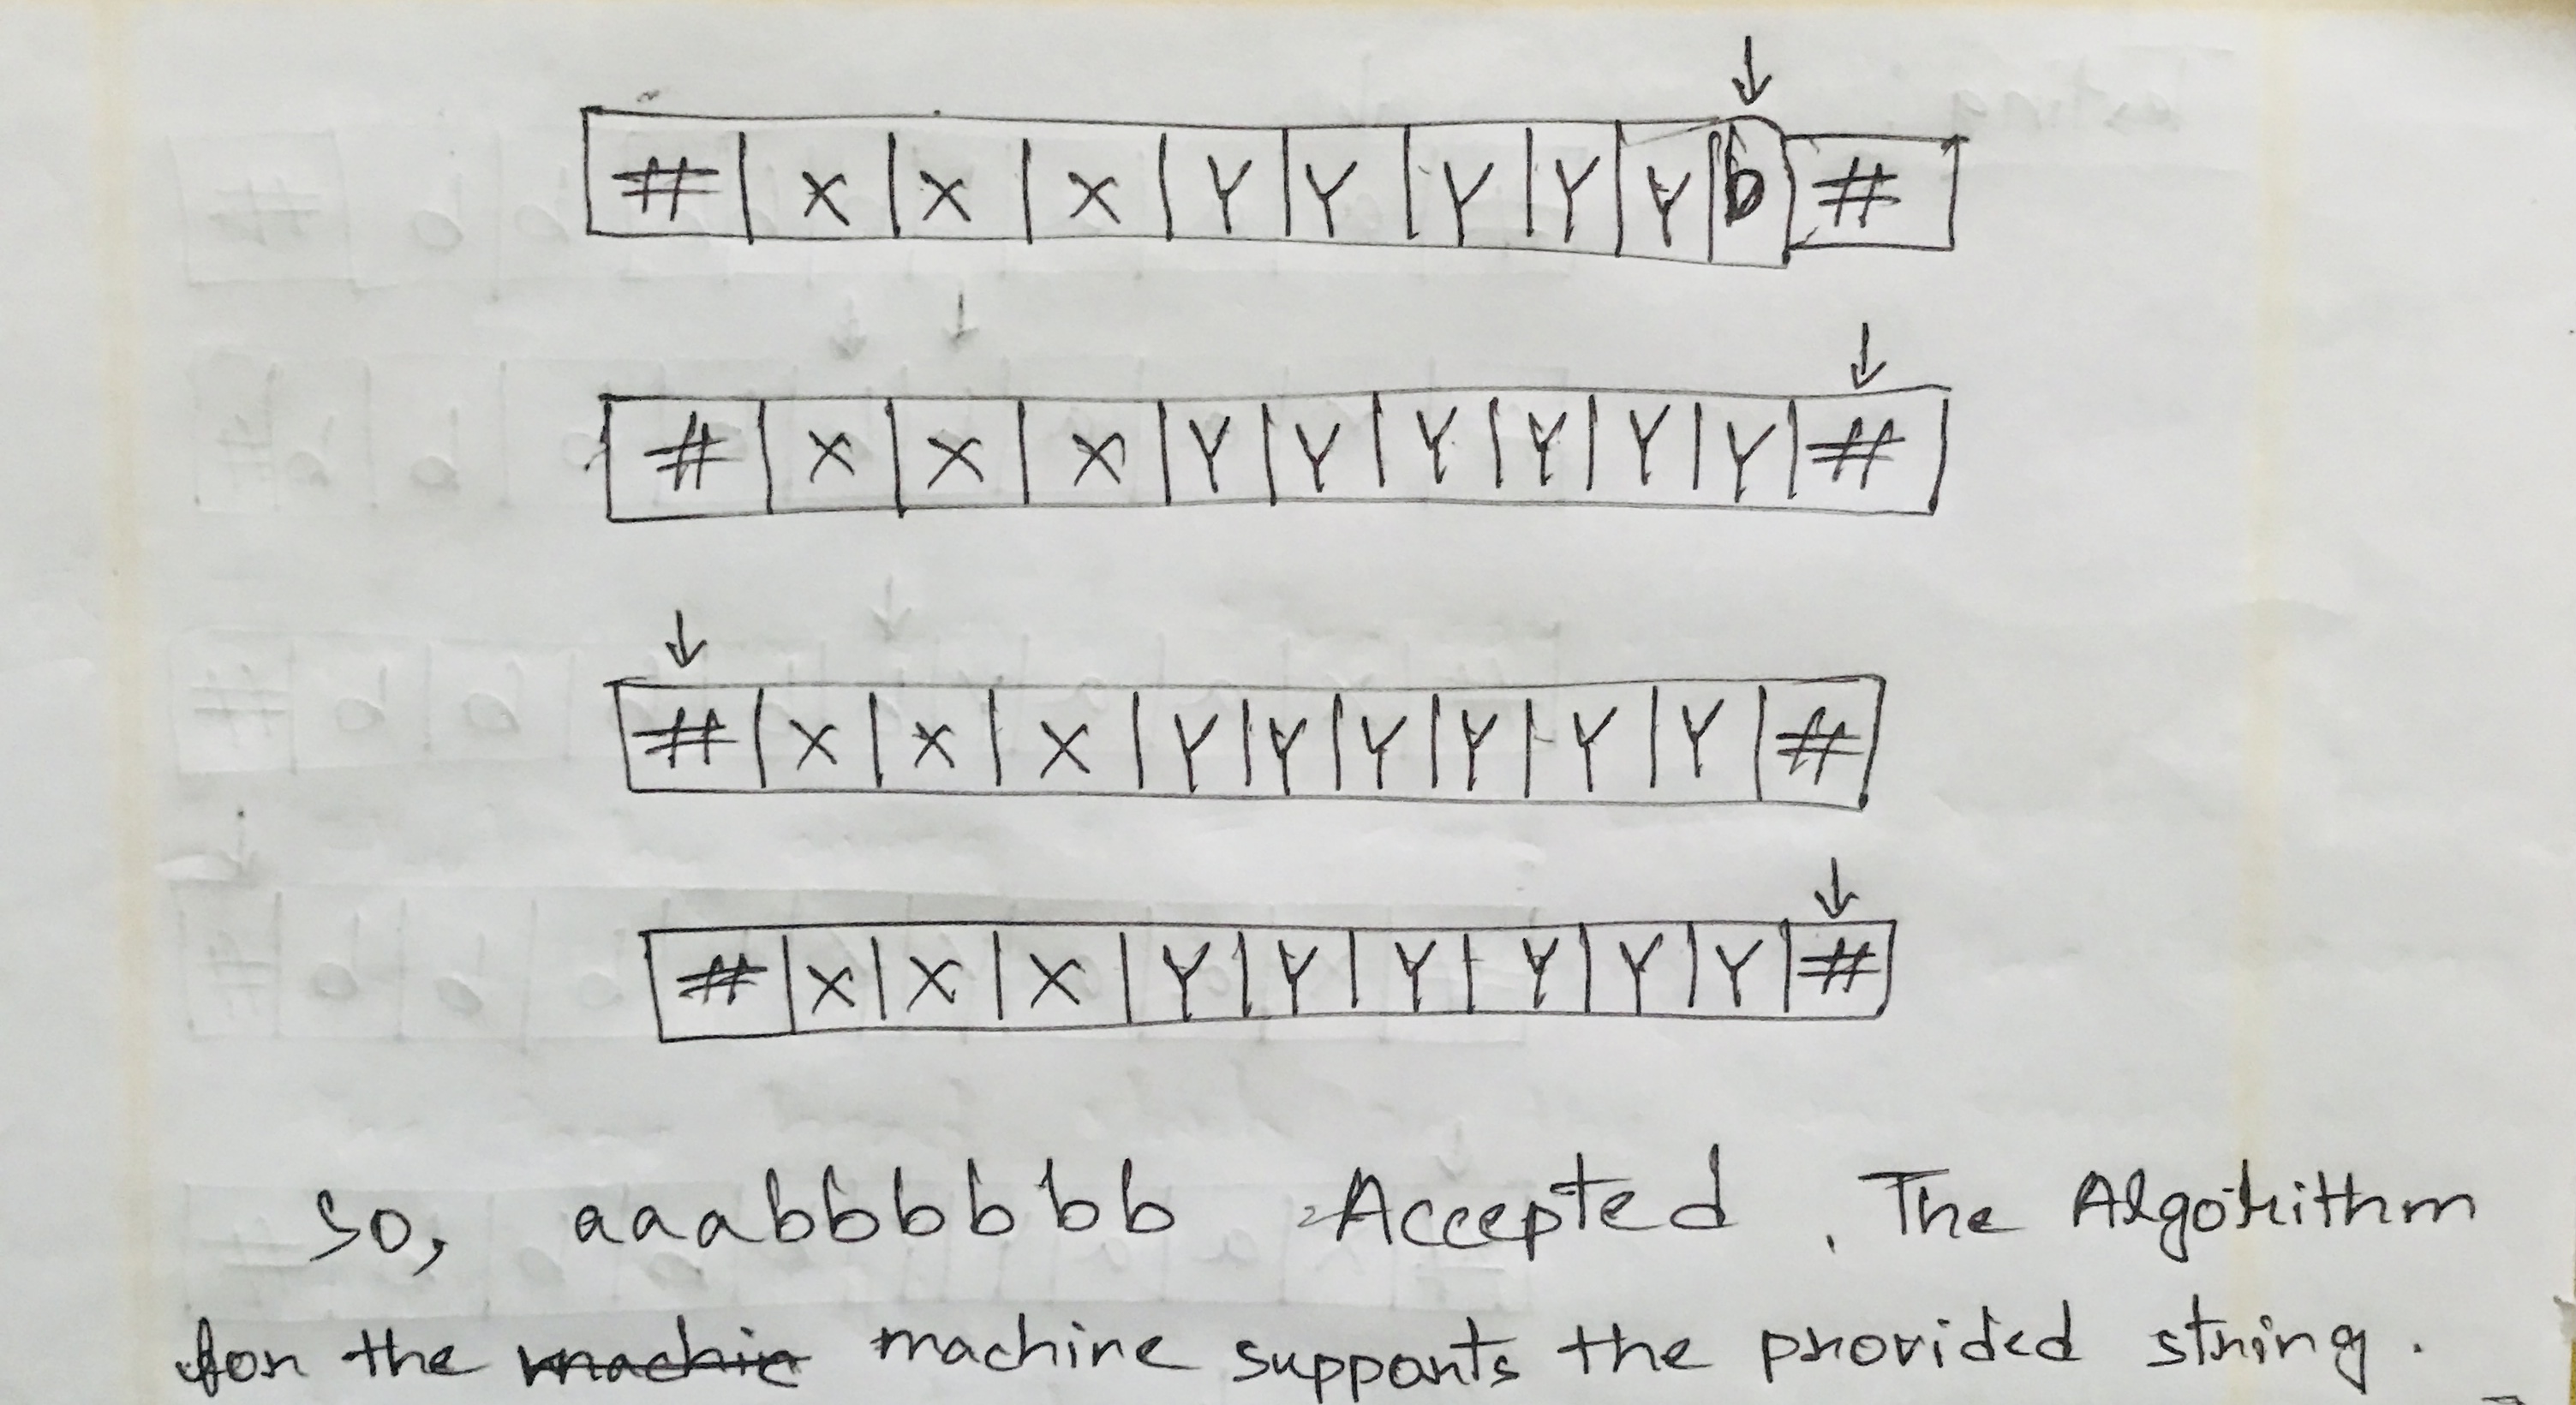 # x x x Y Y Y Y Y b #
# x x x Y Y Y Y Y Y #
# x x x Y Y Y Y Y Y #
# x x x Y Y Y Y Y Y #
So, aaabbbbbb Accepted. The Algorithm
for the machine supports the provided string.